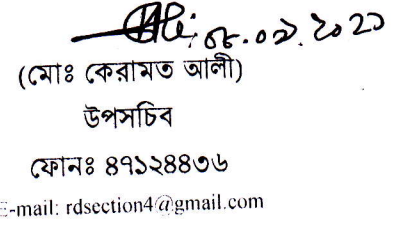 ০৮.০৯.২০২১
(মোঃ কেরামত আলী)
উপসচিব
ফোনঃ ৪৭১২৪৪৩৬
E-mail: rdsection4@gmail.com